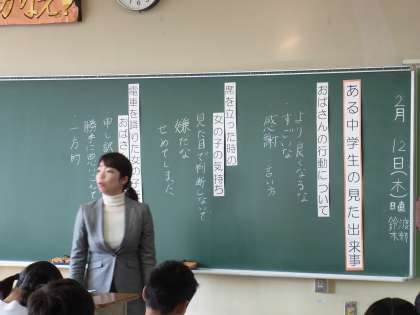 かなえ
2月12日(木)
日直
鈴木
ある中学生の見た出来事
おばさんの行動について
より良くなるな
すごいな
感謝
言い方
席を立った時の
女の子の気持ち
見た目で判断しないで
嫌だな
せめてしまった
電車を降りた女の
おばさ
申し訳
勝手に思い
一方的